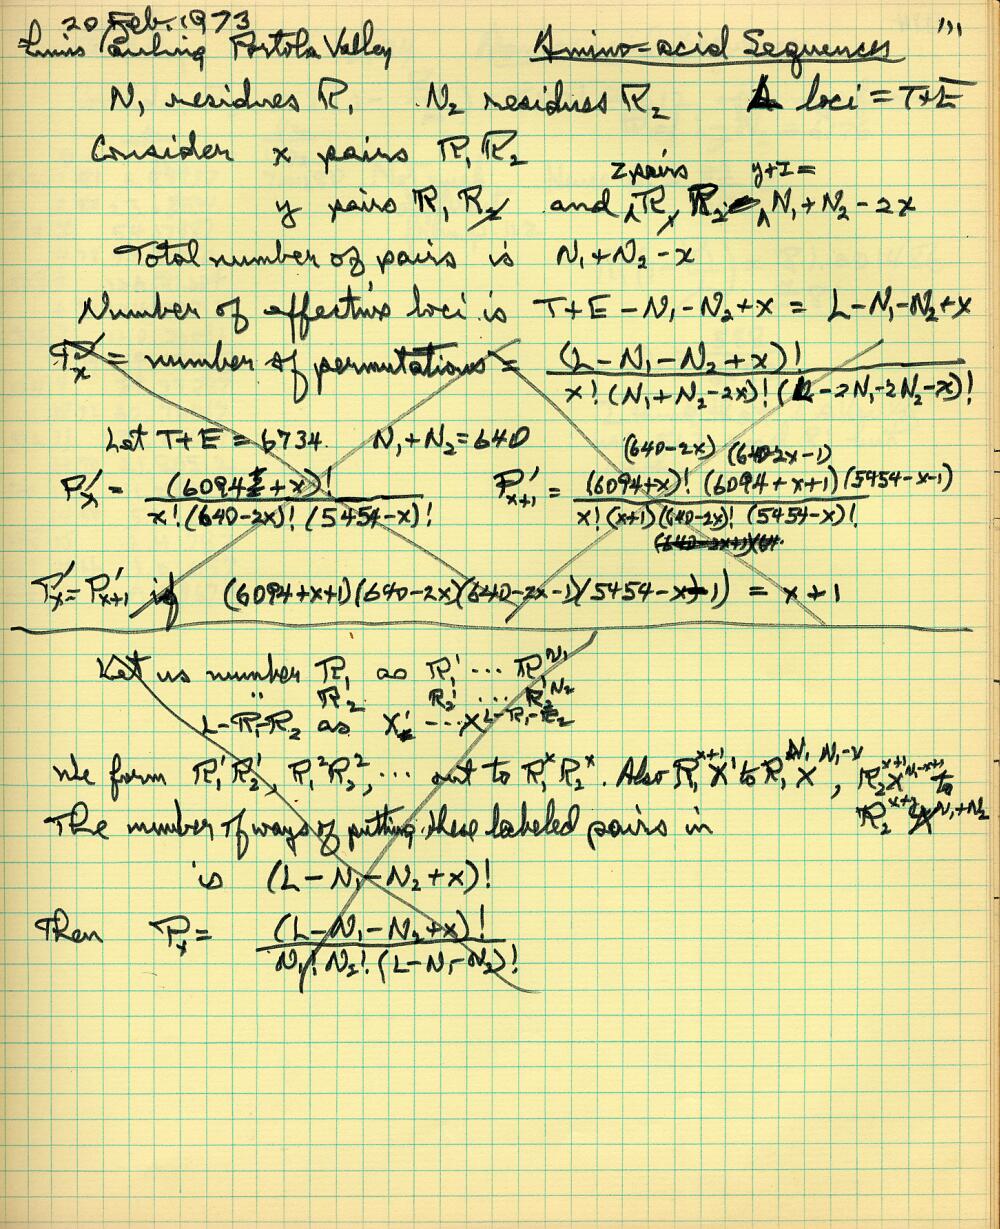 20 Feb. 1973
111
Linus Pauling Portola Valley Amino-acid Sequences
N₁ residues R₁ N₂ residues R₂ L loci = T+E
Consider x pairs R₁R₂
z pairs y+z=
y pairs R₁R̸₂ and R̸₁R₂ N₁+N₂-2x
Total number of pairs is N₁+N₂-x
Number of effective loci is T+E-N₁-N₂+x = L-N₁-N₂+x
Pₓ' = number of permutations = (L-N₁-N₂+x)! / x!(N₁+N₂-2x)!(L-2N₁-2N₂-x)!
Let T+E = 6734. N₁+N₂=640
(640-2x) (640-2x-1)
Pₓ' = (6094+x)! / x!(640-2x)!(5454-x)! Pₓ₊₁' = (6094+x)!(6094+x+1)(5454-x-1) / x!(x+1)(640-2x)!(5454-x)!
Pₓ' = Pₓ₊₁' if (6094+x+1)(640-2x)(640-2x-1)(5454-x-1) = x+1
Let us number R₁ as R₁' ... R₁^N₁
" R₂ R₂' ... R₂^N₂
L-R₁-R₂ as X' ... X^L-R₁-R₂
We form R₁'R₂', R₁²R₂², ... out to R₁ˣR₂ˣ. Also R₁ˣ⁺¹X' to R₁^N₁ X^N₁-x, R₂ˣ⁺¹X^N₁-x+1 to
The number of ways of putting these labeled pairs in
is (L-N₁-N₂+x)!
Then Pₓ = (L-N₁-N₂+x)! / N₁!N₂!(L-N₁-N₂)!